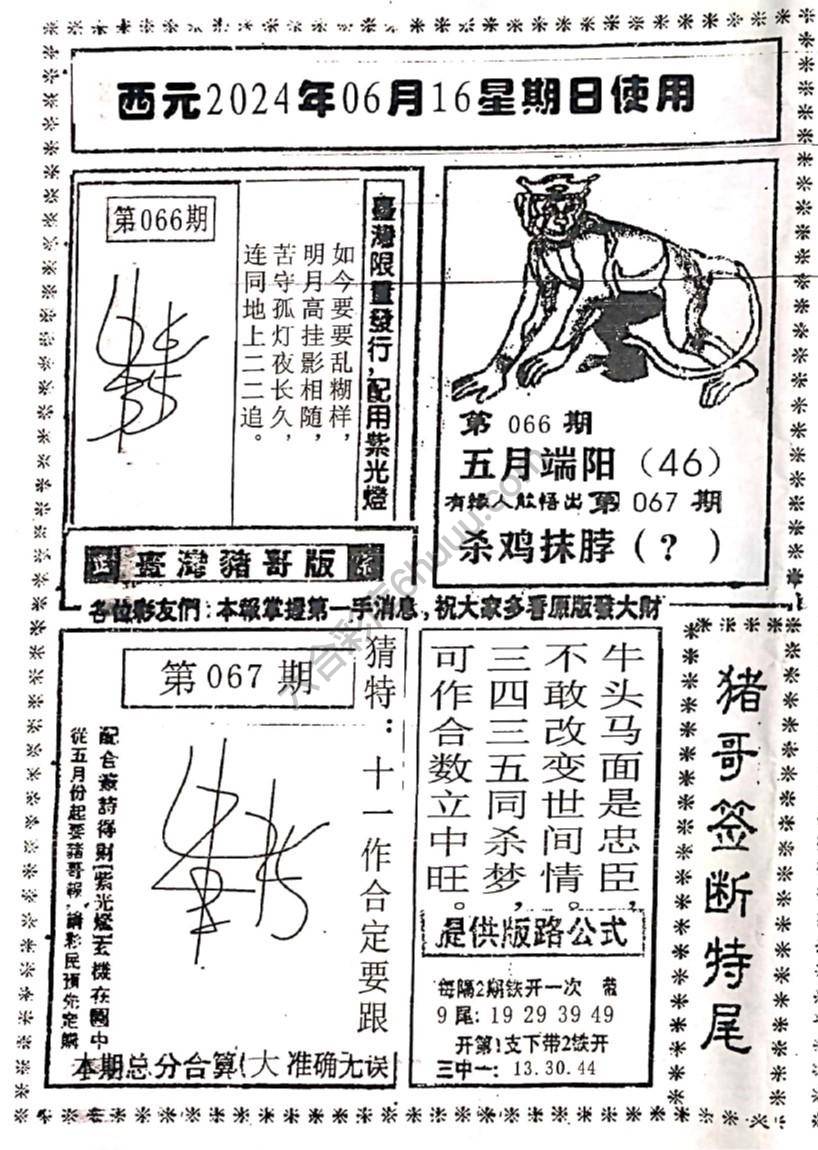 西元2024年06月16星期日使用
第066期
臺灣限量發行，配用紫光燈
如今要要乱糊样，
明月高挂影相随，
苦守孤灯夜长久，
连同地上二二追。
臺灣豬哥版
第 066 期
五月端阳（46）
有緣人能悟出第 067 期
杀鸡抹脖（？）
各位彩友們：本報掌握第一手消息，祝大家多看原版發大財
第067期
猜特：十一作合定要跟
配合叢詩得財[紫光燈]玄機在圖中
從五月份起要豬哥報，請彩民預先定購
本期总分合算（大 准确无误
牛头马面是忠臣，
不敢改变世间情。
三四三五同杀梦，
可作合数立中旺。
提供版路公式
每隔2期铁开一次 带
9尾：19 29 39 49
开第1支下带2铁开
三中一：13.30.44
猪哥签断特尾
六合彩库6huuu.com